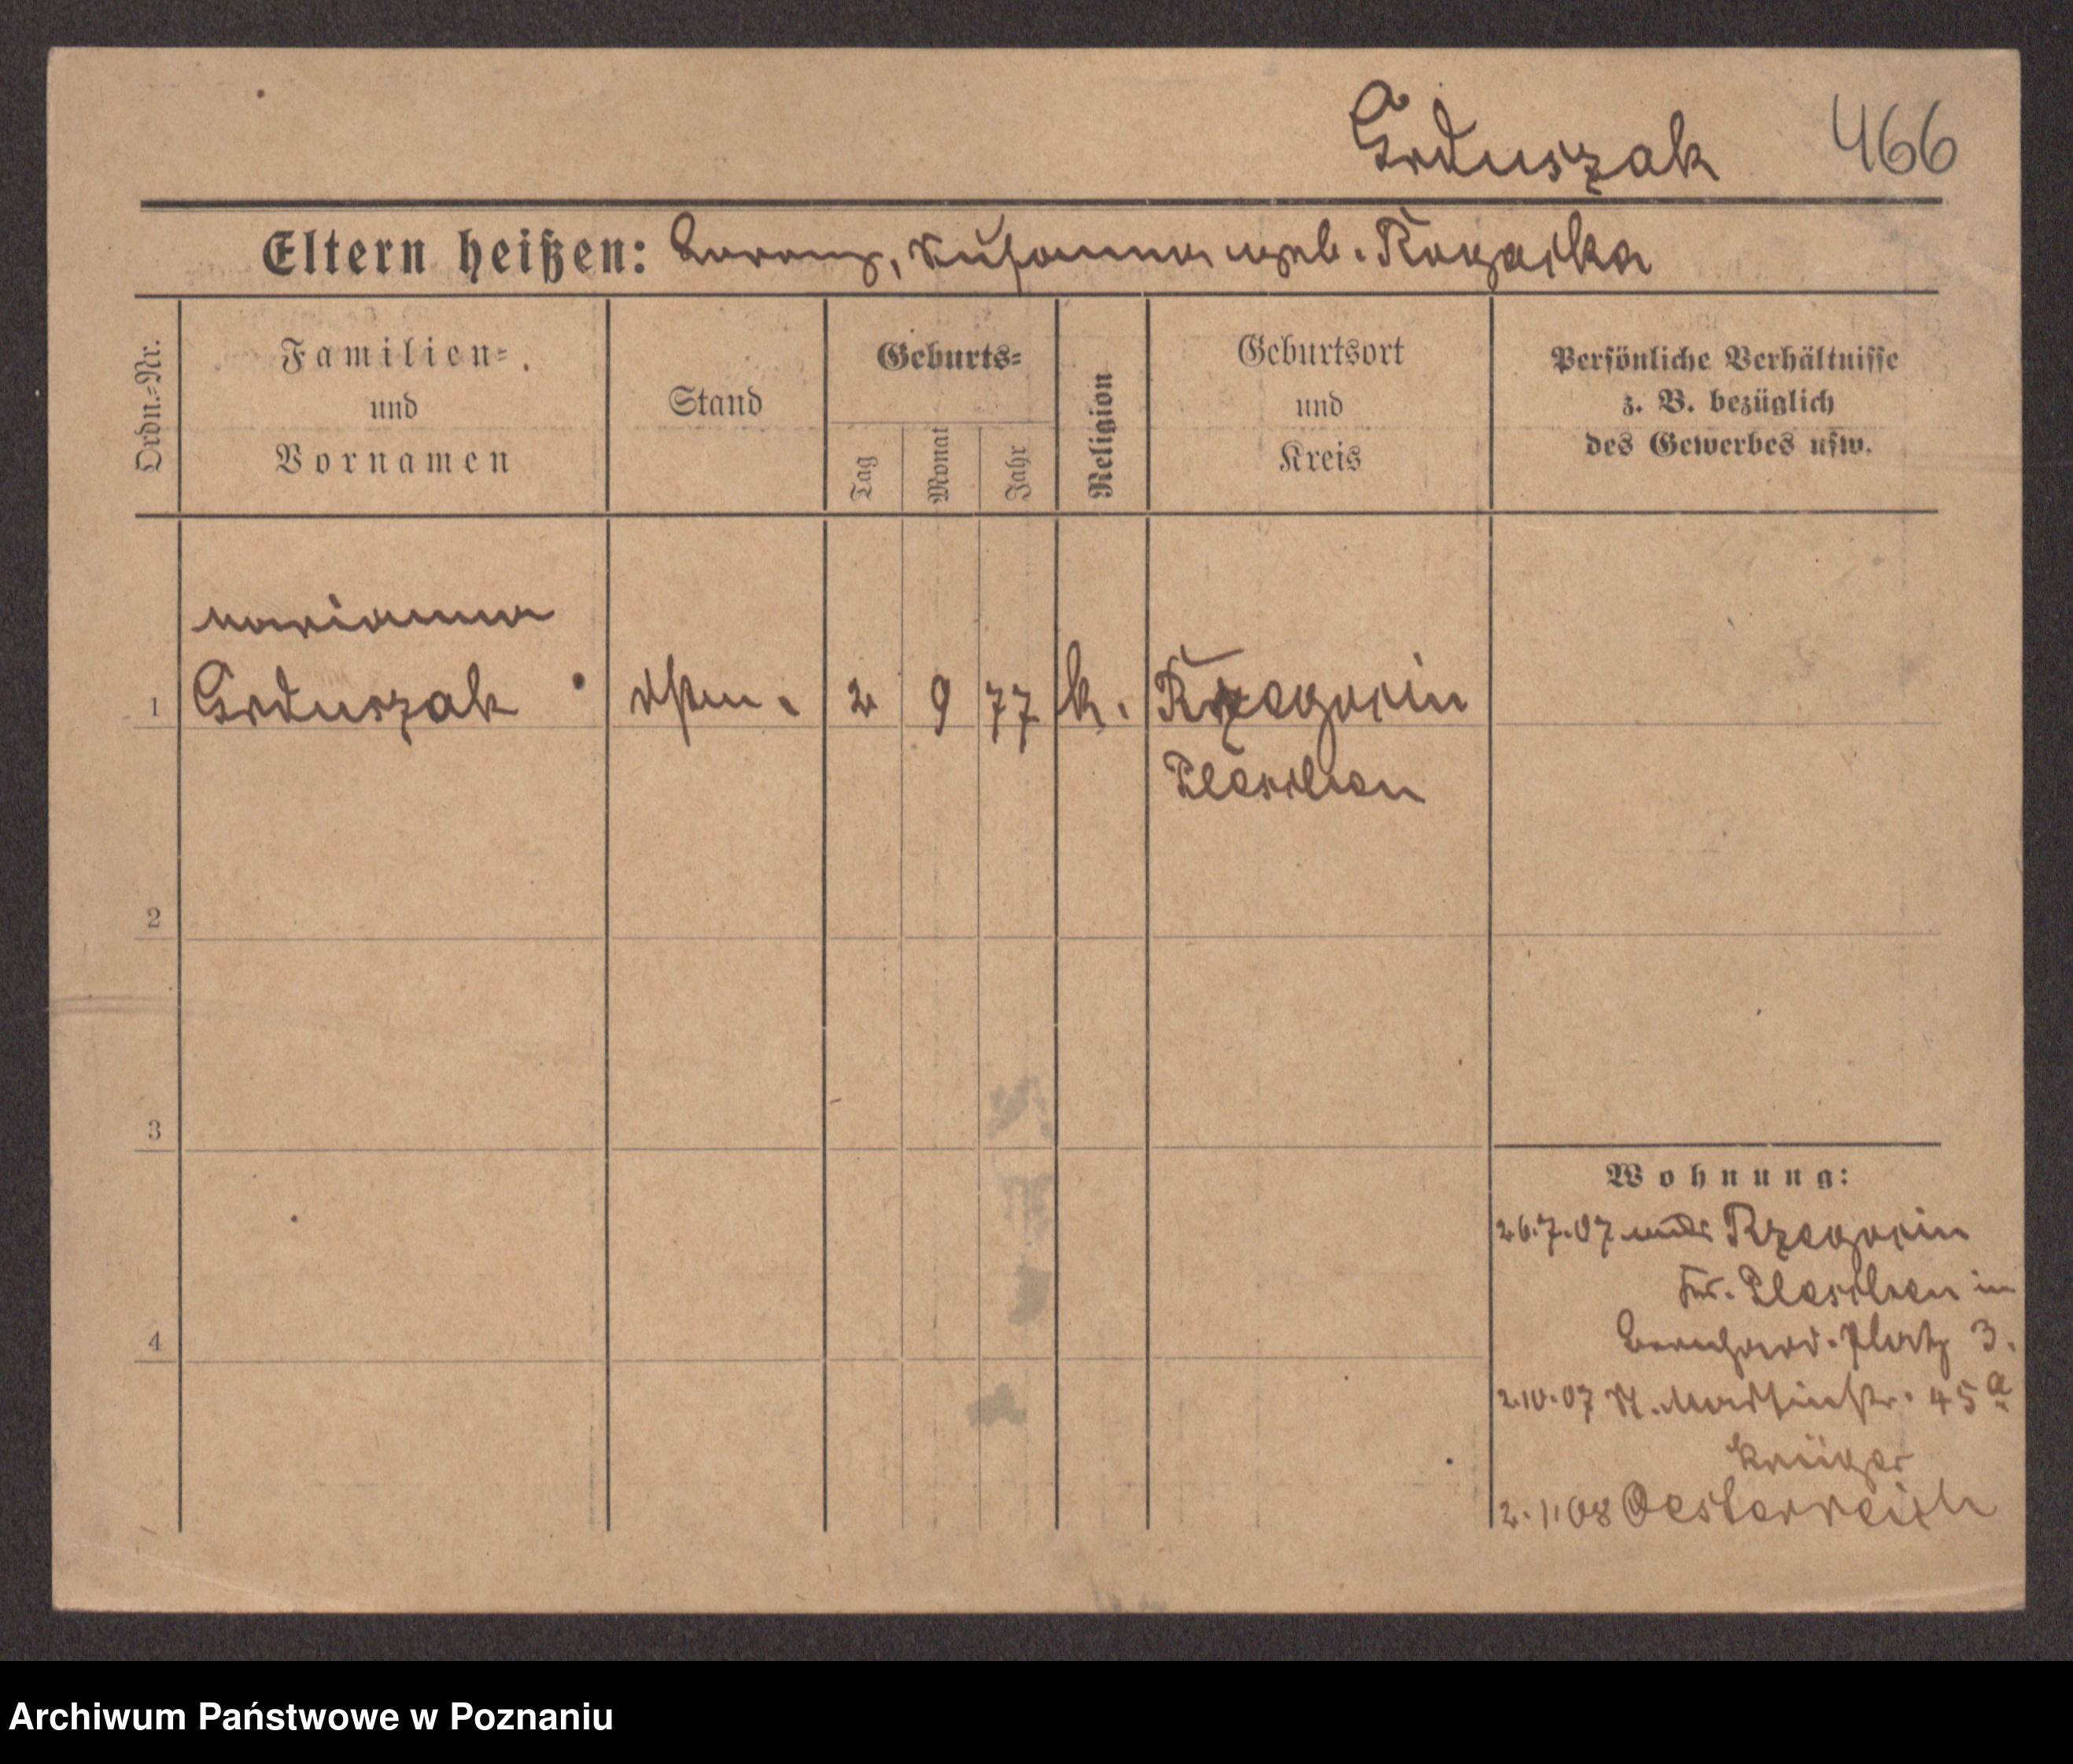 Grduszak 466
Eltern heißen: Lorenz, geb. Rogacka
Ordn.-Nr.
Familien-
und
Vornamen
Stand
Geburts-
Tag
Monat
Jahr
Religion
Geburtsort
und
Kreis
Persönliche Verhältnisse
z. B. bezüglich
des Gewerbes usw.
Marianna
1 Grduszak 2 9 77 k. Rzegocin
Pleschen
2
3
4
Wohnung:
26.7.07 Rzegocin
Kr. Pleschen in
Bernhard. Platz 3.
2.10.07 45a
Krüger
2.1.08 Oesterreich
Archiwum Państwowe w Poznaniu